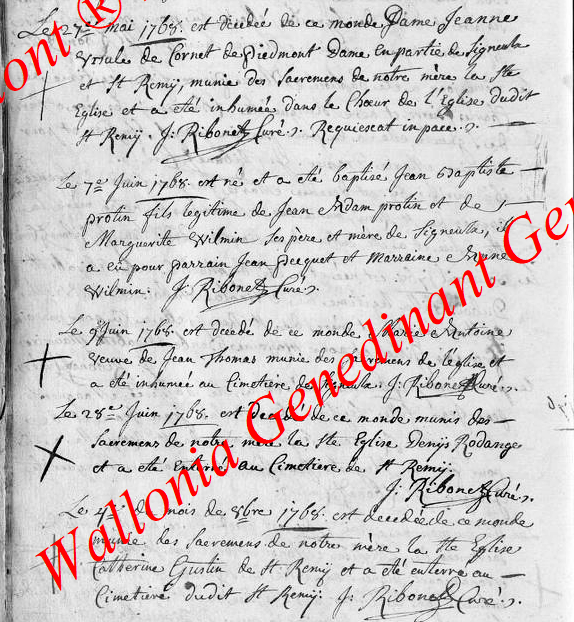 Le 27e mai 1768. est décedée de ce monde Dame Jeanne
Ursule de Cornet de piedmont Dame en partie de Signeulx
et St Remij, munie des Sacremens de notre mère la Ste
Eglise et a eté inhumée dans le Chœur de l'Eglise dudit
St Remij. J: Ribonet Curé. Requiescat in pace.
Le 7e Juin 1768. est né et a eté baptisé Jean Baptiste
protin fils legitime de Jean Adam protin et de
Marguerite Wilmin ses père et mère de Signeulx, il
a eu pour parrain Jean pecquet et Marraine Anne
Wilmin. J: Ribonet Curé.
Le 9e Juin 1768. est decedé de ce monde Marie Antoine
veuve de Jean Thomas munie des Sacremens de l'eglise et
a eté inhumée au Cimetière de Signeulx. J: Ribonet Curé.
Le 28e Juin 1768. est decedé de ce monde munis des
Sacremens de notre mère la Ste Eglise Denijs Rodange
et a eté Enterré au Cimetiere de St Remij.
J: Ribonet Curé.
Le 4e du mois de 8bre 1768. est decedée de ce monde
munie des Sacremens de notre mère la Ste Eglise
Catherine Gustin de St Remij et a eté enterré au
Cimetiere dudit St Remij. J: Ribonet Curé.
ont ®
Wallonia Genedinant Gen